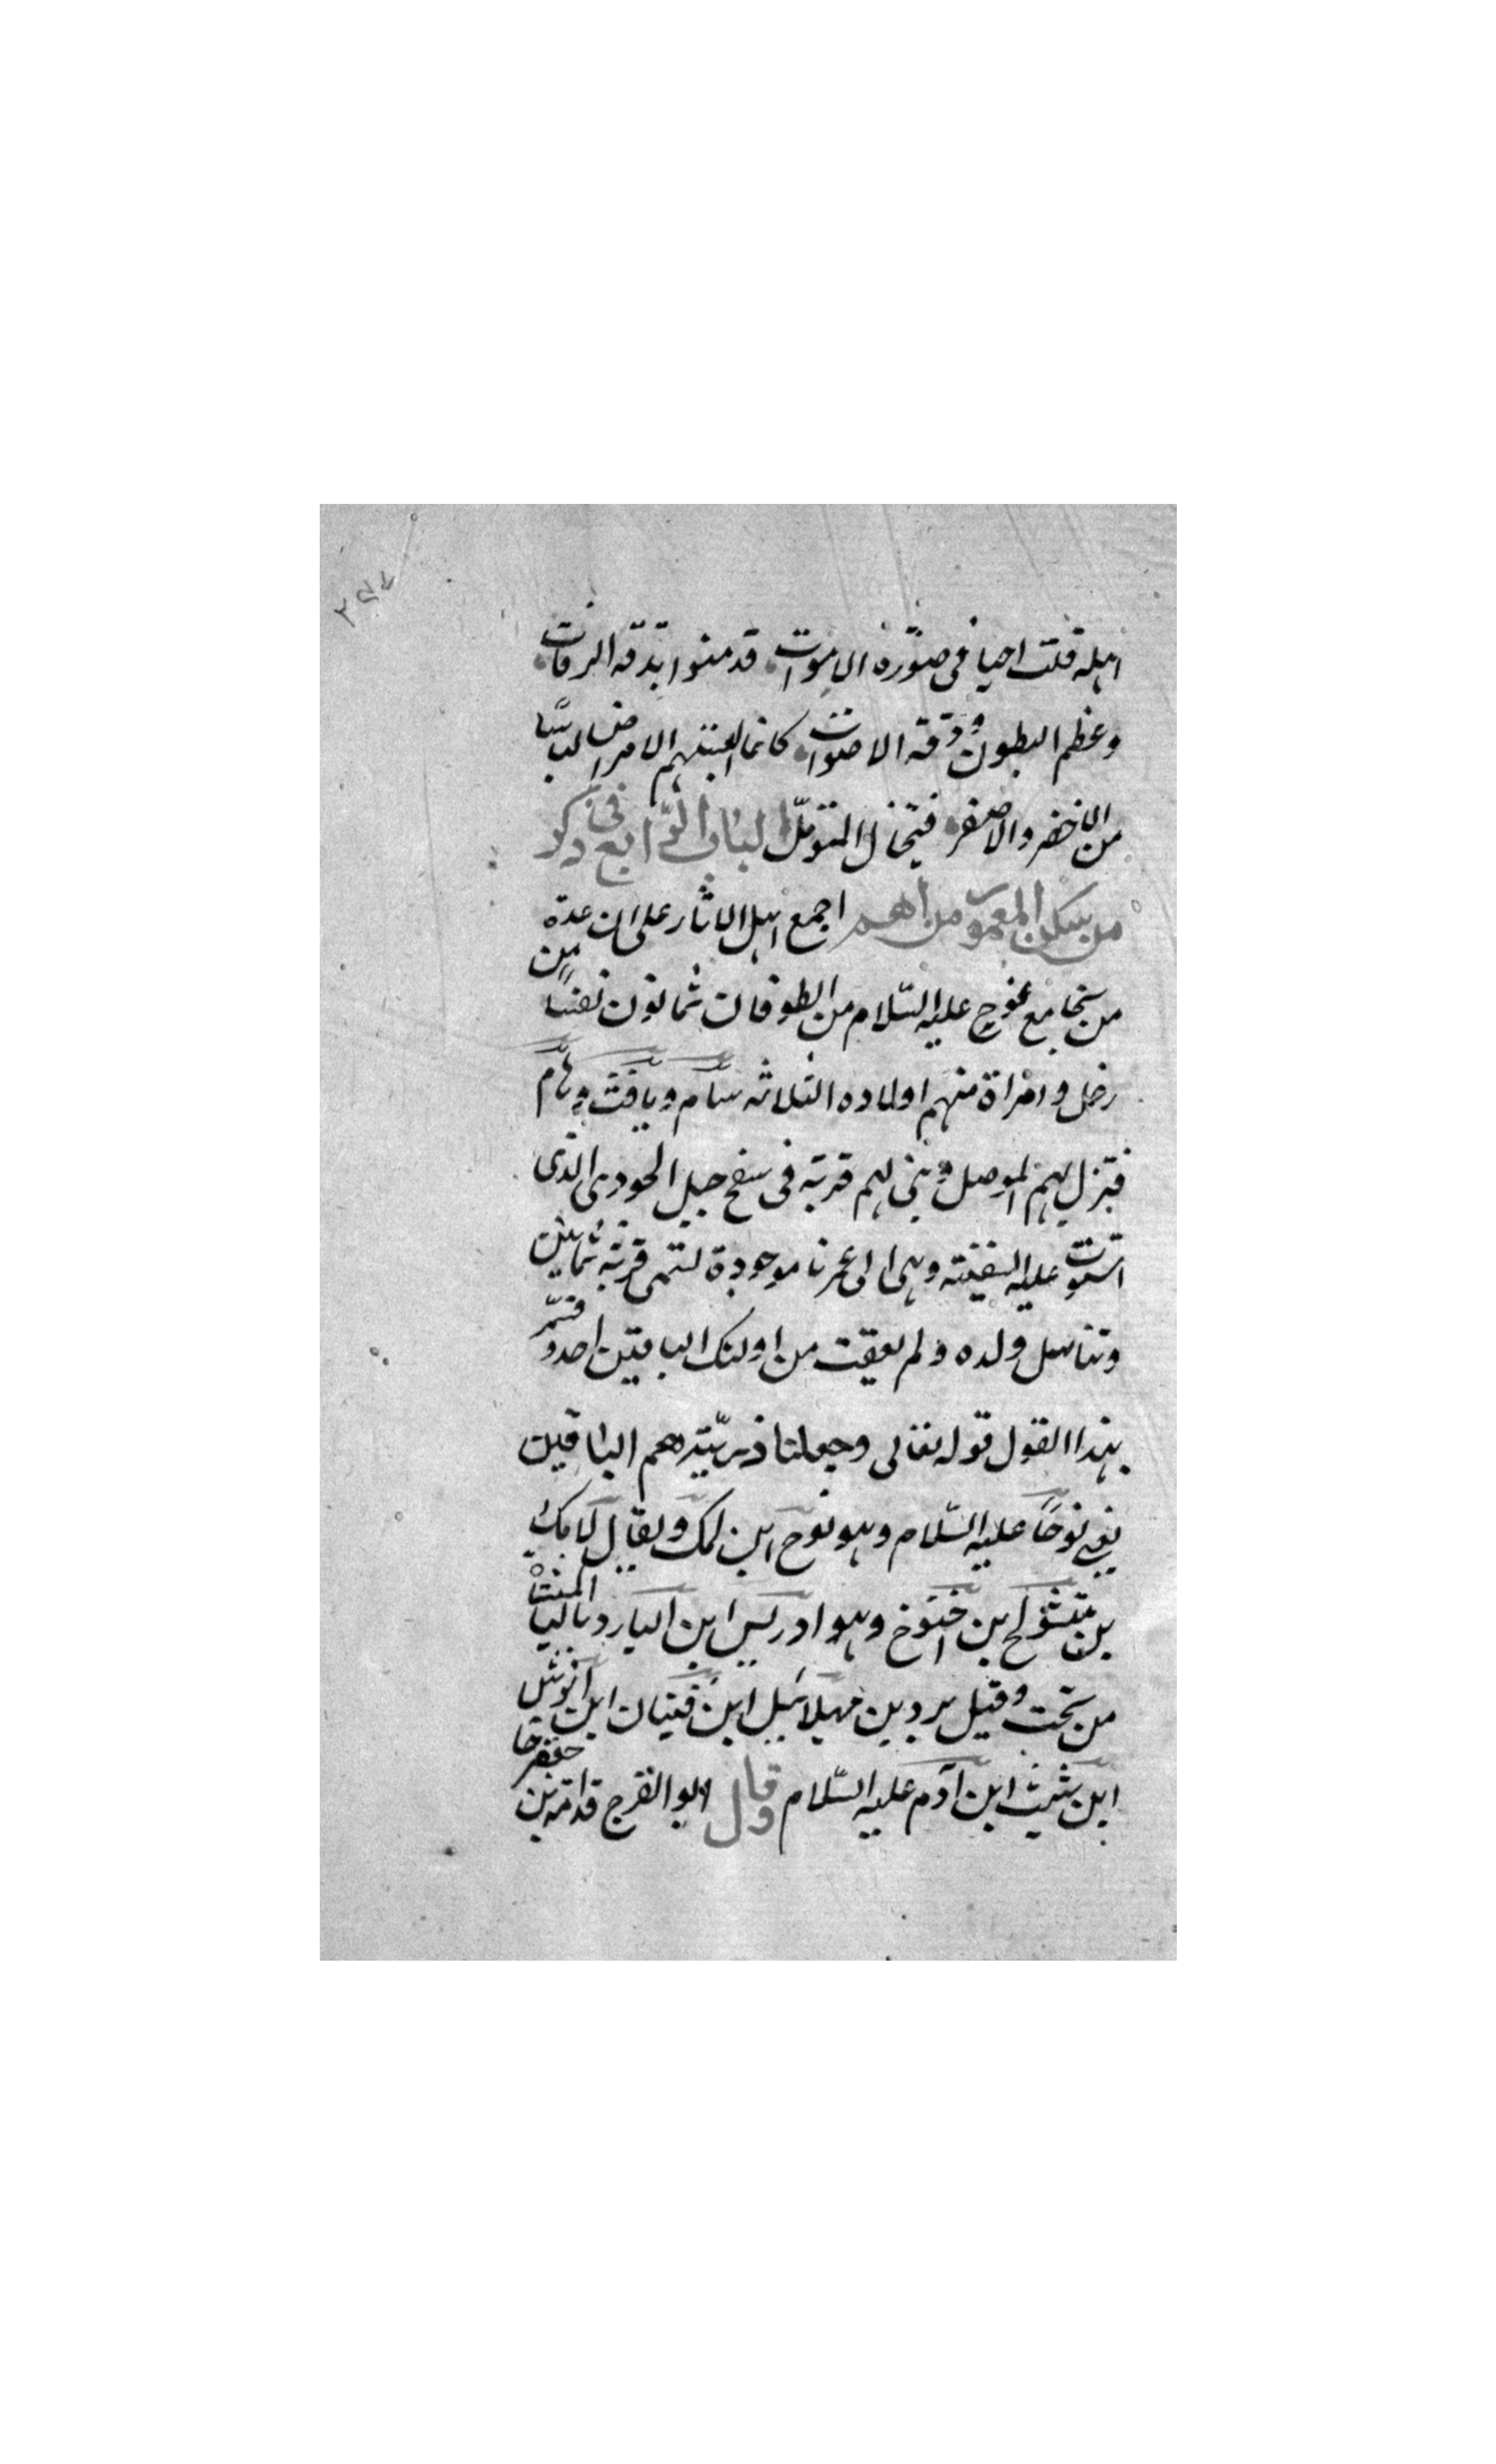 اهله قلت احيا فى صورة الاموات قد منوا بدقة الرقات
وعظم البطون ودقة الاصوات كانما البستهم الامراض لباسا
من الاخضر والاصفر فيتخال المتوتل الباب الرابع فى ذكر
من يسكن المعمور من الامم اجمع اهل الاثار على ان عدة
من نجا مع نوح عليه السّلام من الطوفان ثمانون نفسا من
رجل وامراة منهم اولاده الثلاثه سام ويافث وحام
فنزل بهم الموصل وبنى لهم قرية فى سفح جبل الجودى الذى
استوت عليه السفينة وهى الى عصرنا موجودة تسمى قرية ثمانين
وتناسل ولده ولم يعقب من اولئك الباقين احد وفسّر
بهذا القول قوله تعالى وجعلنا ذريّته هم الباقين
يعنى نوحًا عليه السّلام وهو نوح ابن لمك ويقال لامك
بن متشولح ابن اخنوخ وهو ادريس ابن اليارد باليا المثناة
من تحت وقيل يرد بن مهلائيل ابن قينان ابن انوش
ابن شيث ابن آدم عليه السّلام وقال ابو الفرج قدامة بن جعفر